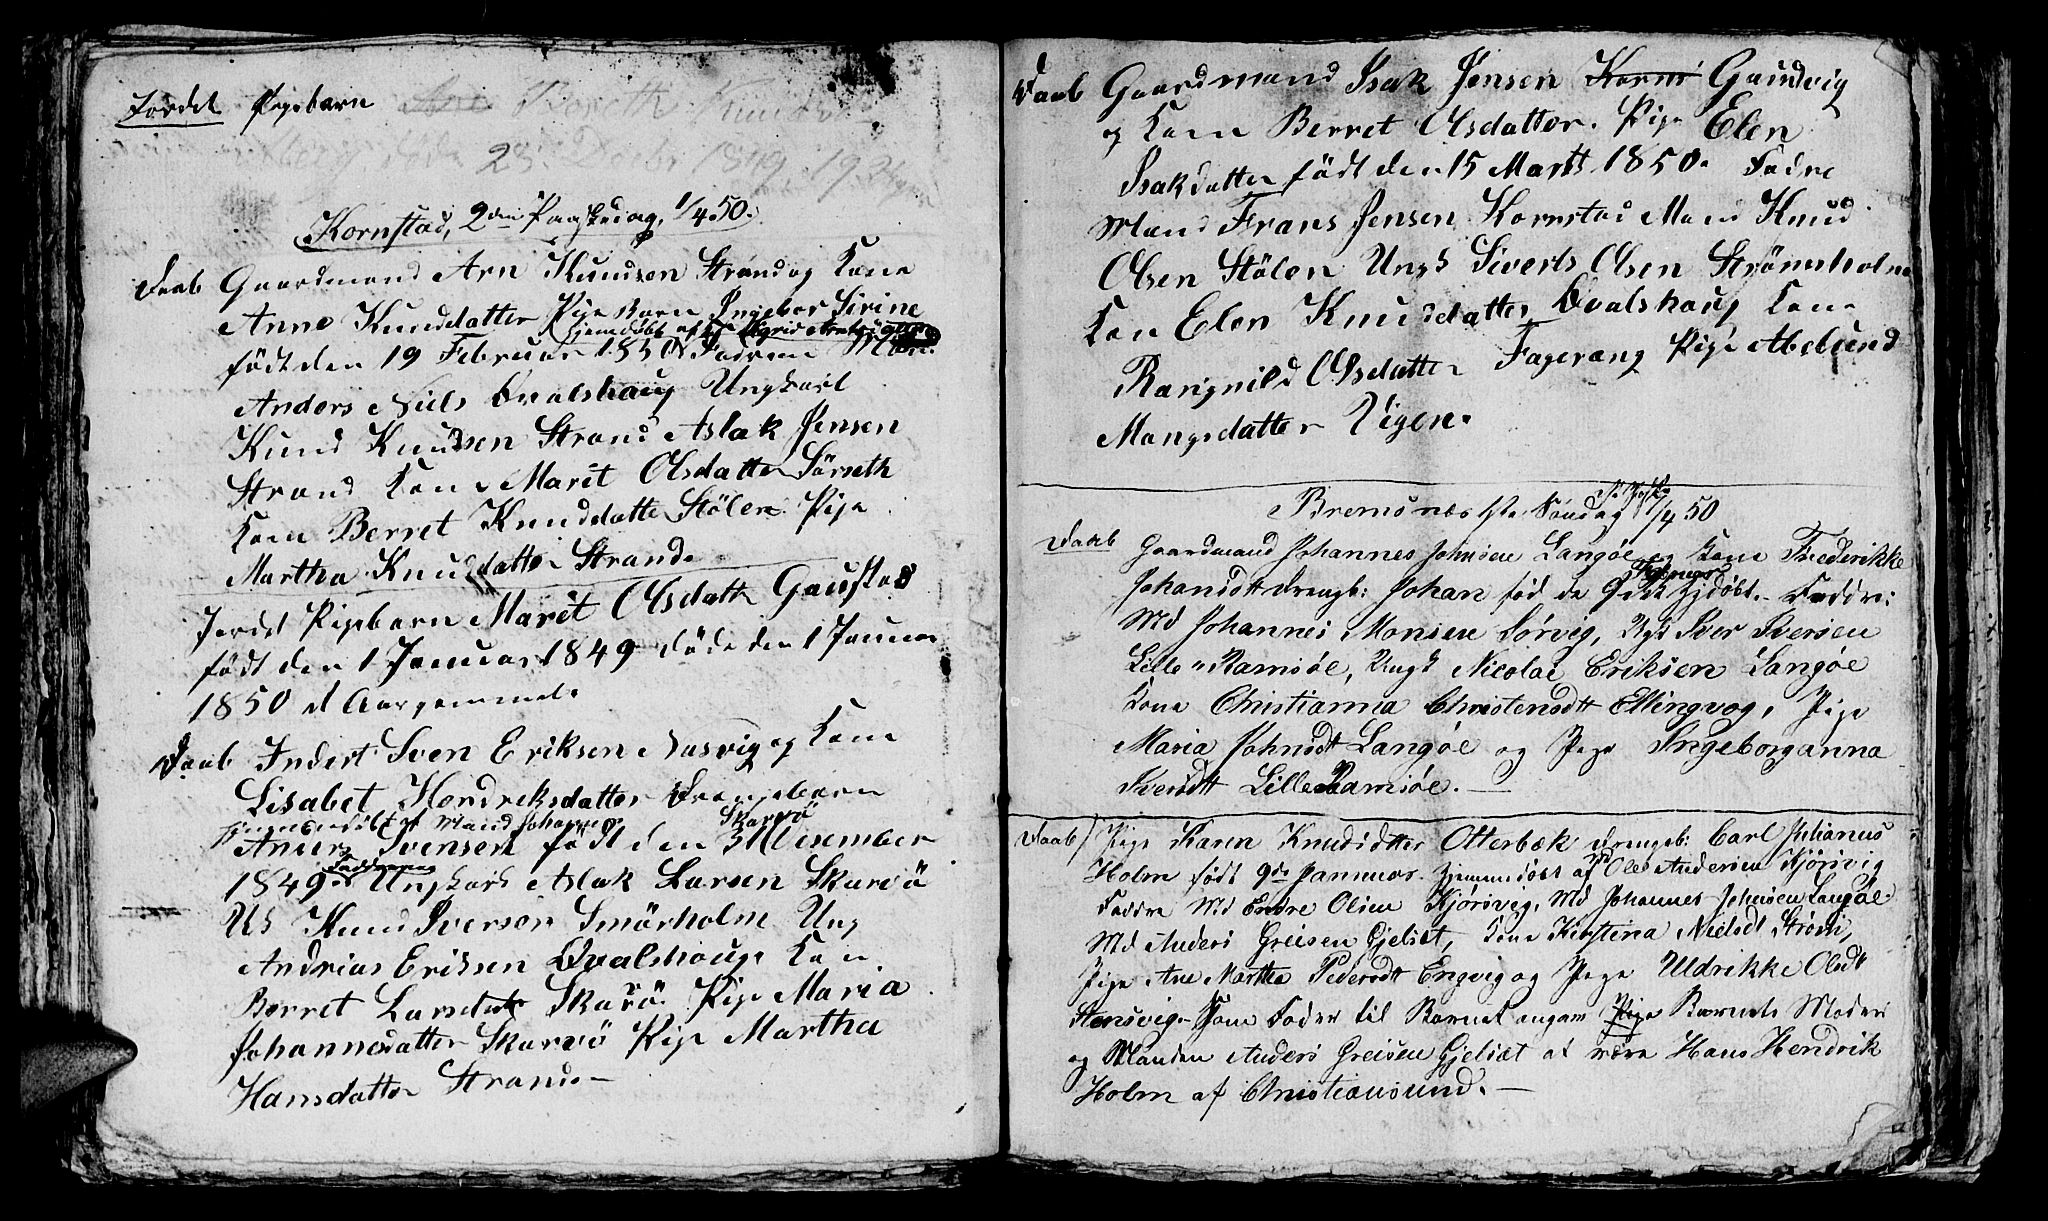 Jordet Pigebarn Ane Berethe Knudsd
døde 28 Decbr 1849, 19
Kornstad, 2den Paaskedag, 1/4 50.
Daab Gaardmand Arn Knudsen Strand og Kone
Anne Knuddatter Pige Barn Ingebor Sirine
hjemdøbt af Sigrid
født den 19 Februar 1850 Fadrene Mand
Anders Niels Ovalshaug Ungkarl
Knud Knudsen Strand Aslak Jensen
Strand Kone Marit Olsdatter Sørseth
Kone Berret Knuddatter Stölen Pige
Martha Knuddatter Strand
Jordet Pigebarn Marit Olsdatter Gaustad
født den 1 Januar 1849 døde den 1 Januar
1850 et Aar gammel
Daab Inderst Sven Eriksen Nasvig og Kone
Lisabet Hendreksdatter Drengebarn
hjemmedøbt af Mand Johannes Skarvö
Anders Svensen født den 31 Desember
1849 Faddrene Ungkarl Aslak Larsen Skarvö
Uk Knud Iversen Smörholm Ung
Andrias Eriksen Qvalshaug Kone
Berret Larsdatt Skarvö Pige Maria
Johannesdatter Skarvö Pige Martha
Hansdatter Strand
Daab Gaardmand Isak Jensen Korns Gaudvig
og Kone Berret Olsdatter Pige Elen
Isakdatter født den 15 Marts 1850 Fadre
Mand Frans Jensen Kornstad Mand Knud
Olsen Stölen Ungk Siverts Olsen Strømsholm
Kone Elen Knuddatter Ovalshaug Kone
Rangnild Olsdatter Fagerang Pige Abelund
Mangsdatter Vigen
Bremsnæs 1ste Søndag p. Paaske 7/4 50
Daab Gaardmand Johannes Johnsen Langøe og Kone Frederikke
Johansdtt Drengb: Johan fød de 9de Februar hjdøbt. Faddre:
Md Johannes Monsen Sørvig, Ugk Iver Iversen
Lille Ramsøe, Ungk Nicolai Eriksen Langøe
Kone Christianna Christensdtt Ellingvog, Pige
Maria Johnsdtt Langøe og Pige Ingeborganna
Iversdtt Lille Ramsøe.
Daab Pige Karen Knudsdtter Otterbæk Drengeb: Carl Julianus
Holm født 9de Januar. hjemmedøbt af Md Ole Andersen Kjørsvig
Faddre Md Endre Olsen Kjørsvig, Md Johannes Johnsen Langøe
Md Anders Greisen Gjelsæt, Kone Kirstina Nielsdt Strøm,
Pige Ane Martha Pedersdtt Engvig og Pige Uldrikke Olsdt
Stensvig. Som Fader til Barnet angav Pige Barnets Moder
og Manden Anders Greisen Gjelsæt at være Hans Hendrik
Holm af Christiansund.